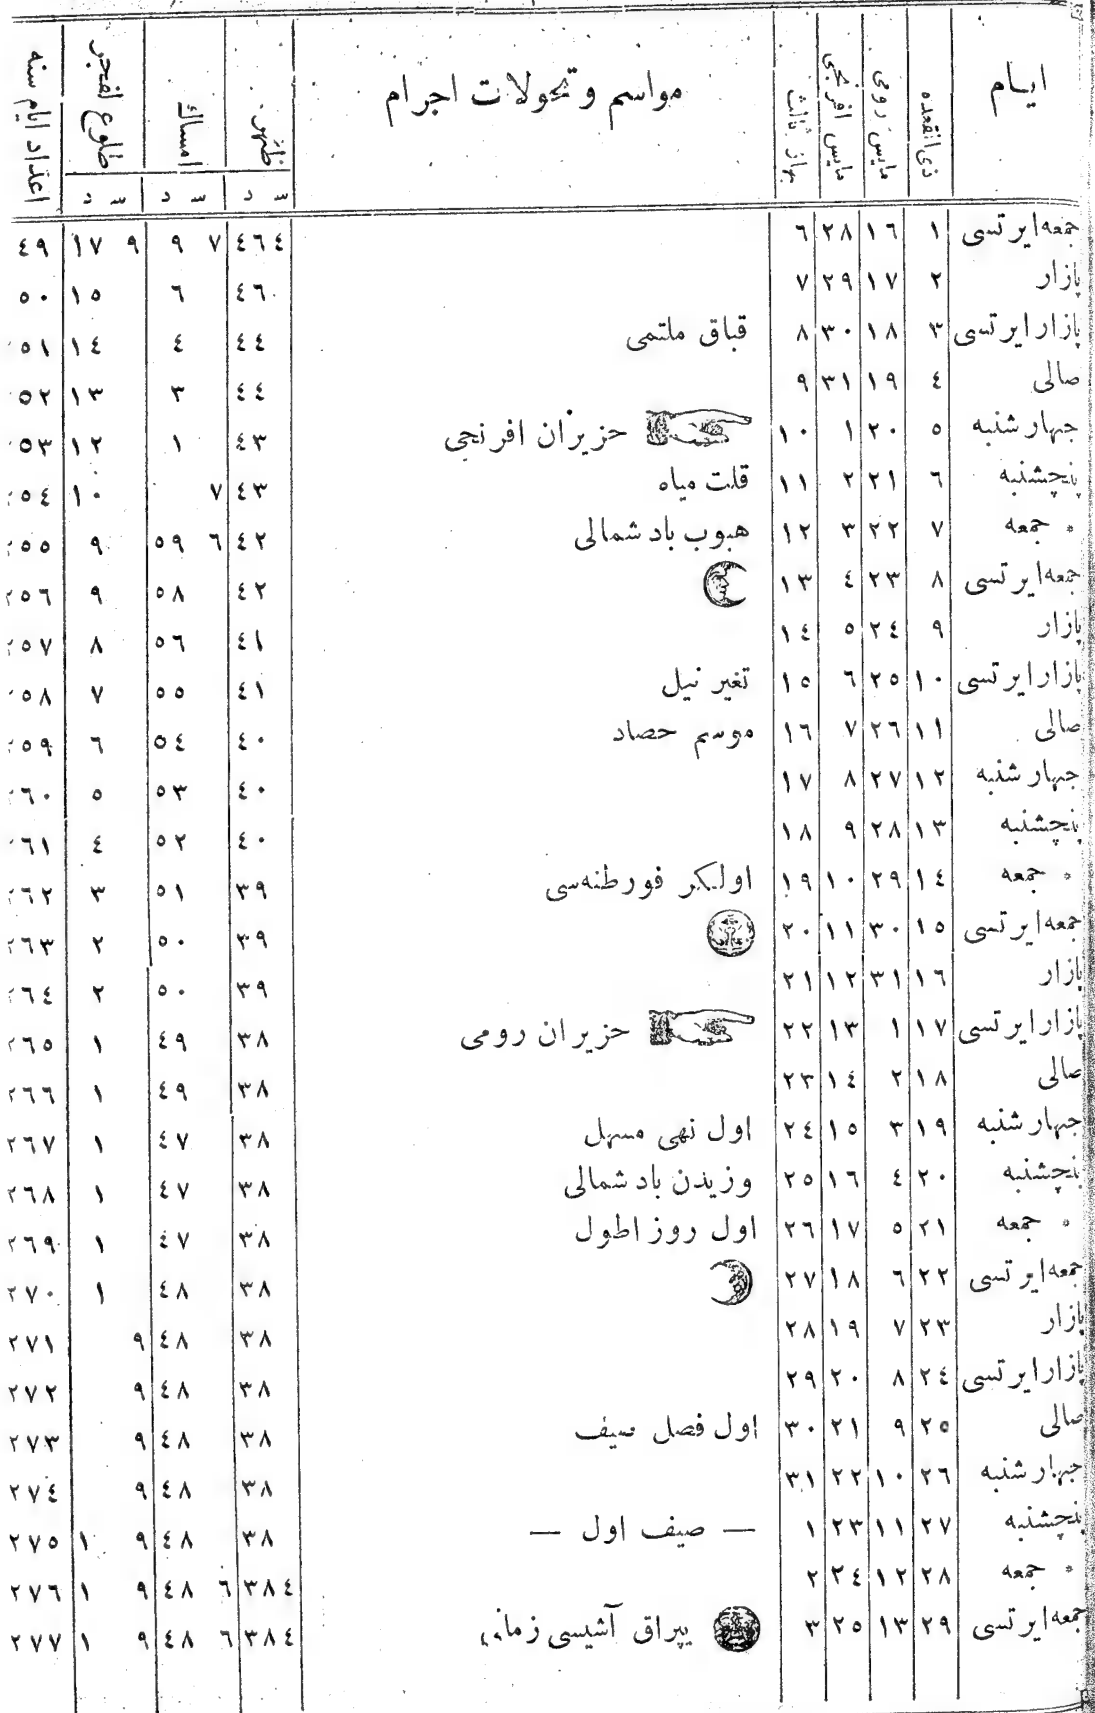 ايام ذى القعده مايس رومى مايس افرنجى بهار ثالث مواسم و تحولات اجرام ظهر امساك طلوع الفجر اعداد ايام سنه
س د س د س د
جمعه ايرتسى ١ ١٦ ٢٨ ٦ ٤ ٤٦ ٧ ٩ ٩ ١٧ ٤٩
پازار ٢ ١٧ ٢٩ ٧ ٤٦ ٦ ١٥ ٥٠
پازار ايرتسى ٣ ١٨ ٣٠ ٨ قباق ملتمى ٤٤ ٤ ١٤ ٥١
صالى ٤ ١٩ ٣١ ٩ ٤٤ ٣ ١٣ ٥٢
چهار شنبه ٥ ٢٠ ١ ١٠ حزيران افرنجى ٤٣ ١ ١٢ ٥٣
پنچشنبه ٦ ٢١ ٢ ١١ قلت مياه ٤٣ ٧ ١٠ ٢٥٤
* جمعه ٧ ٢٢ ٣ ١٢ هبوب باد شمالى ٤٢ ٦ ٥٩ ٩ ٢٥٥
جمعه ايرتسى ٨ ٢٣ ٤ ١٣ ٤٢ ٥٨ ٩ ٢٥٦
پازار ٩ ٢٤ ٥ ١٤ ٤١ ٥٦ ٨ ٢٥٧
پازار ايرتسى ١٠ ٢٥ ٦ ١٥ تغير نيل ٤١ ٥٥ ٧ ٢٥٨
صالى ١١ ٢٦ ٧ ١٦ موسم حصاد ٤٠ ٥٤ ٦ ٢٥٩
چهار شنبه ١٢ ٢٧ ٨ ١٧ ٤٠ ٥٣ ٥ ٢٦٠
پنچشنبه ١٣ ٢٨ ٩ ١٨ ٤٠ ٥٢ ٤ ٢٦١
* جمعه ١٤ ٢٩ ١٠ ١٩ اولكر فورطنه‌سى ٣٩ ٥١ ٣ ٢٦٢
جمعه ايرتسى ١٥ ٣٠ ١١ ٢٠ ٣٩ ٥٠ ٢ ٢٦٣
پازار ١٦ ٣١ ١٢ ٢١ ٣٩ ٥٠ ٢ ٢٦٤
پازار ايرتسى ١٧ ١ ١٣ ٢٢ حزيران رومى ٣٨ ٤٩ ١ ٢٦٥
صالى ١٨ ٢ ١٤ ٢٣ ٣٨ ٤٩ ١ ٢٦٦
چهار شنبه ١٩ ٣ ١٥ ٢٤ اول نهى مسهل ٣٨ ٤٧ ١ ٢٦٧
پنچشنبه ٢٠ ٤ ١٦ ٢٥ وزيدن باد شمالى ٣٨ ٤٧ ١ ٢٦٨
* جمعه ٢١ ٥ ١٧ ٢٦ اول روز اطول ٣٨ ٤٧ ١ ٢٦٩
جمعه ايرتسى ٢٢ ٦ ١٨ ٢٧ ٣٨ ٤٨ ١ ٢٧٠
پازار ٢٣ ٧ ١٩ ٢٨ ٣٨ ٤٨ ٩ ٢٧١
پازار ايرتسى ٢٤ ٨ ٢٠ ٢٩ ٣٨ ٤٨ ٩ ٢٧٢
صالى ٢٥ ٩ ٢١ ٣٠ اول فصل صيف ٣٨ ٤٨ ٩ ٢٧٣
چهار شنبه ٢٦ ١٠ ٢٢ ٣١ ٣٨ ٤٨ ٩ ٢٧٤
پنچشنبه ٢٧ ١١ ٢٣ ١ — صيف اول — ٣٨ ٤٨ ٩ ١ ٢٧٥
* جمعه ٢٨ ١٢ ٢٤ ٢ ٤ ٣٨ ٦ ٤٨ ٩ ١ ٢٧٦
جمعه ايرتسى ٢٩ ١٣ ٢٥ ٣ يپراق آشيسى زمانى ٤ ٣٨ ٦ ٤٨ ٩ ١ ٢٧٧